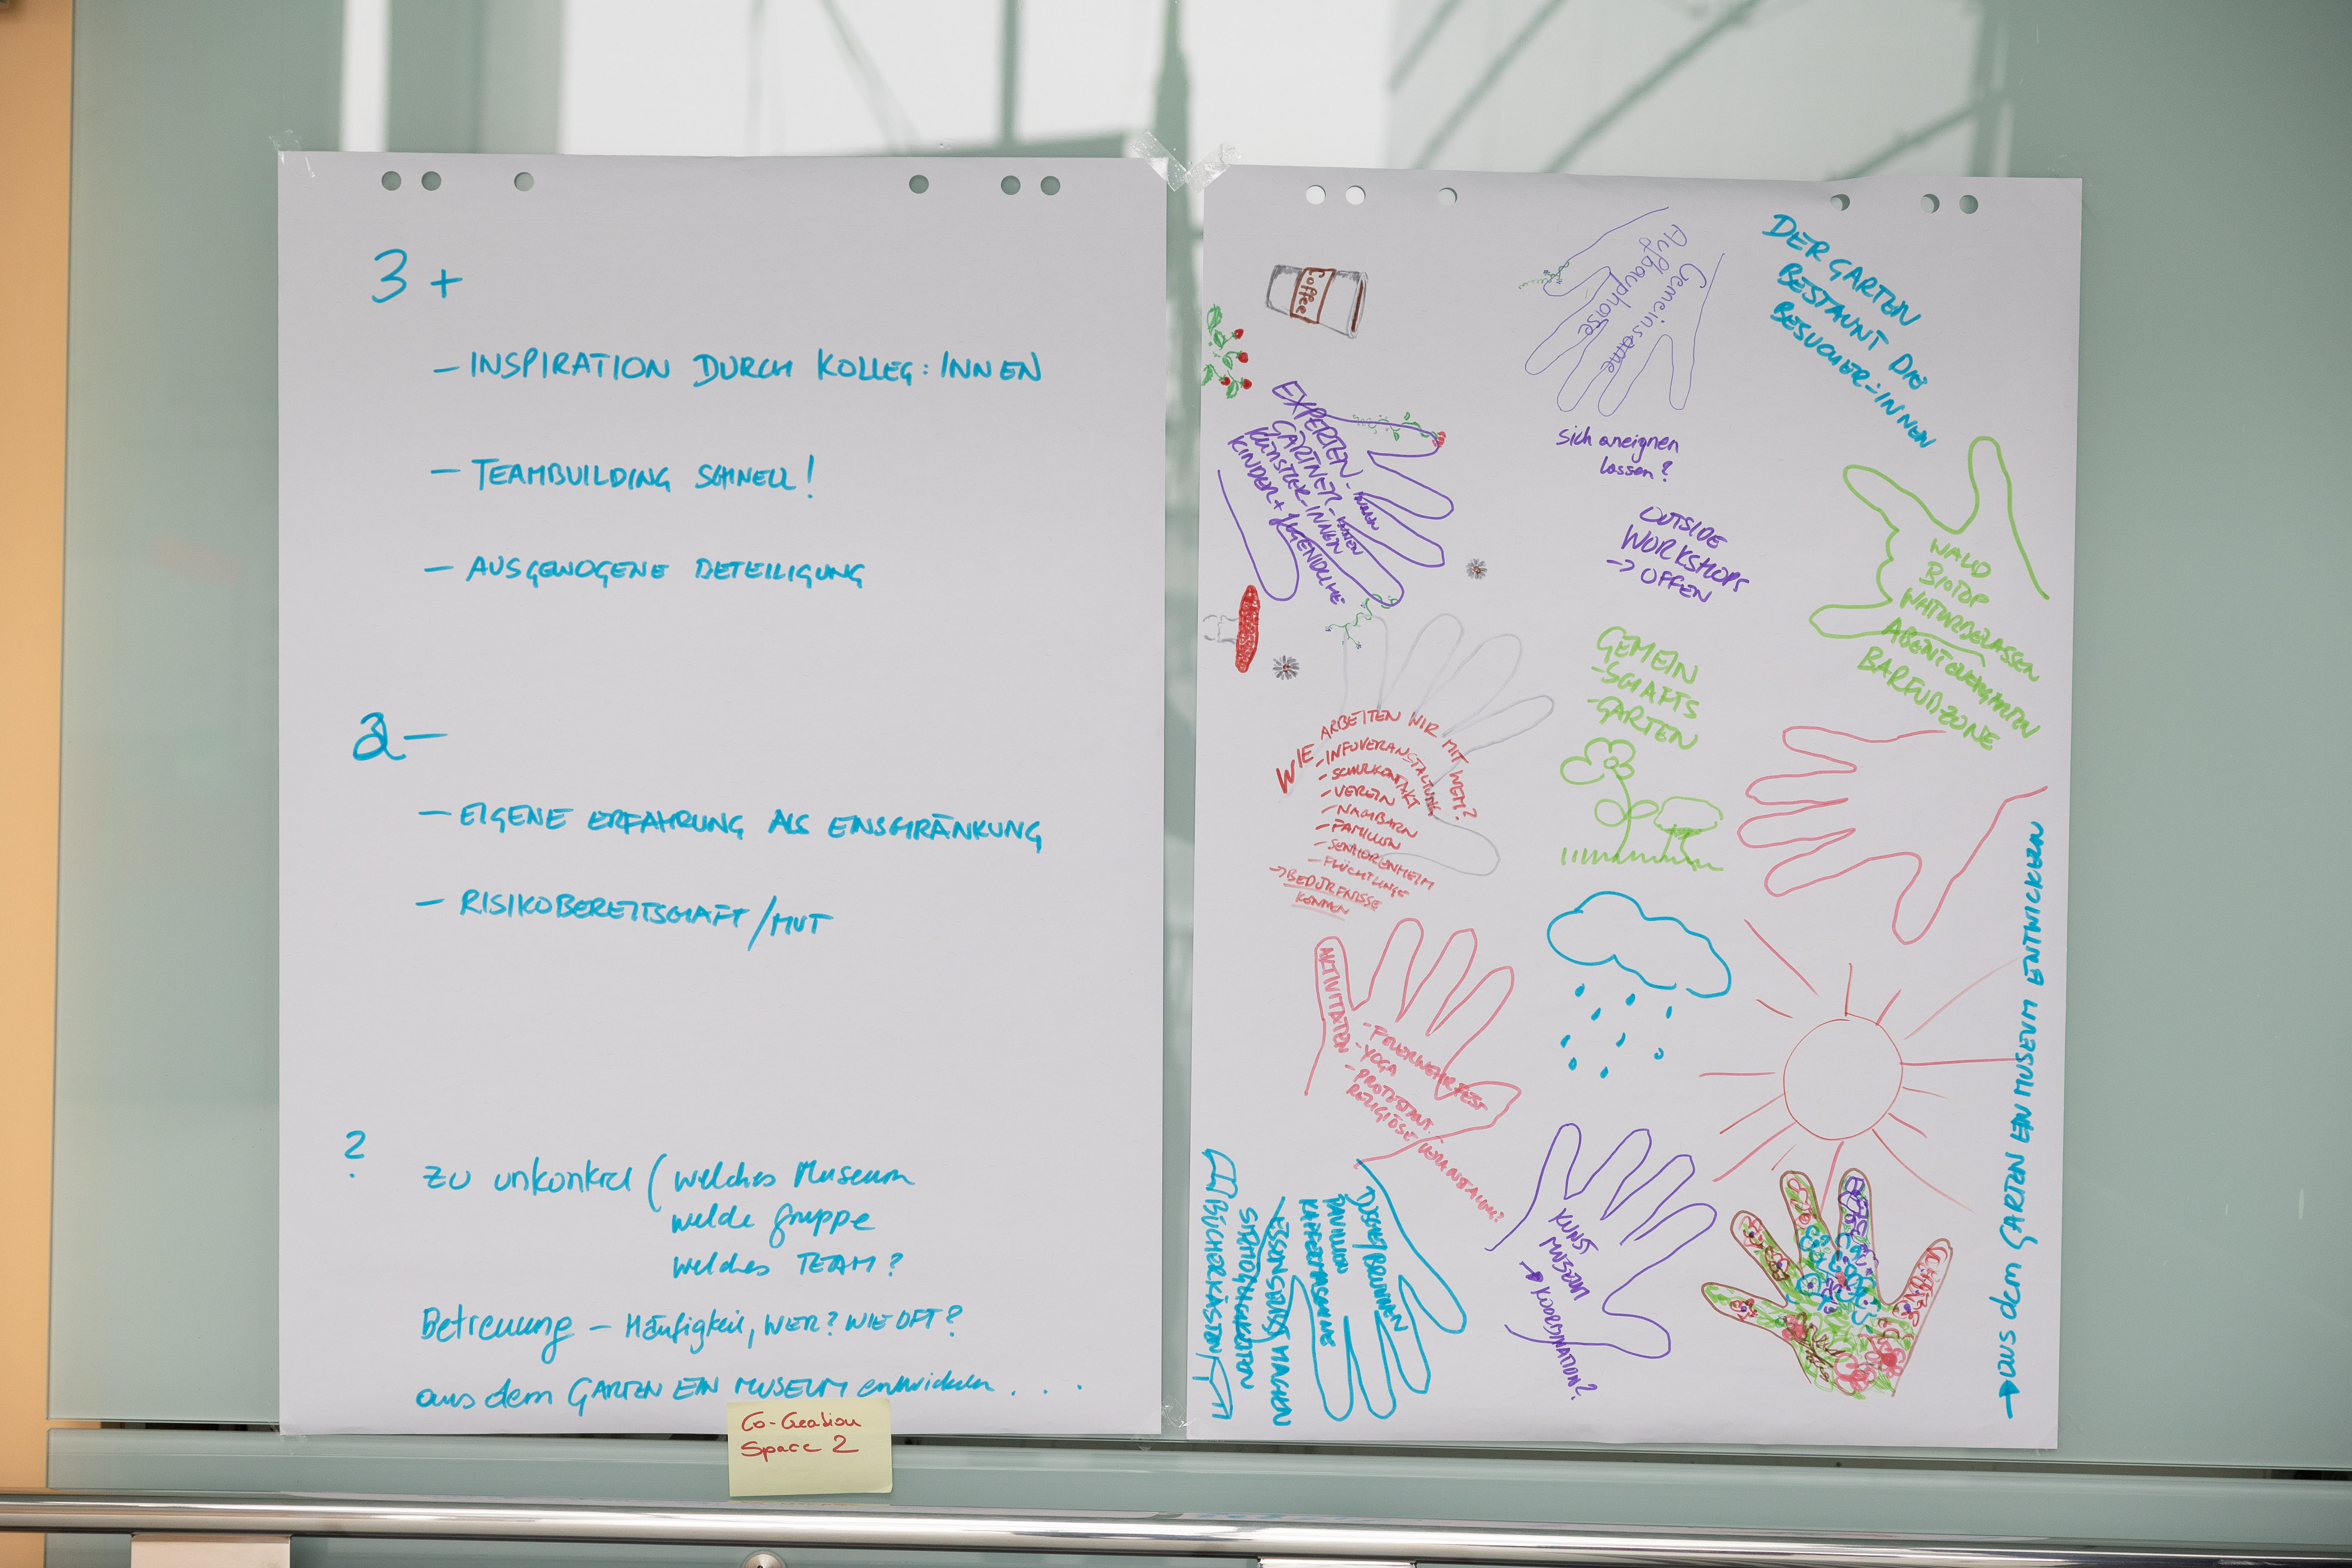 3 +
– INSPIRATION DURCH KOLLEG:INNEN
– TEAMBUILDING SCHNELL!
– AUSGEWOGENE BETEILIGUNG
2 –
– EIGENE ERFAHRUNG ALS EINSCHRÄNKUNG
– RISIKOBEREITSCHAFT/MUT
?
ZU unkonkret (welches Museum
welche Gruppe
welches TEAM?
Betreuung – Häufigkeit, WER? WIE OFT?
aus dem GARTEN EIN MUSEUM entwickeln...
Co-Creation
Space 2
Coffee
Gemeinsame
Aufbauphase
sich aneignen
lassen?
DER GARTEN
BESTAUNT DIE
BESUCHER:INNEN
EXPERTEN-INNEN
GÄRTNER-INNEN
KÜNSTLER-INNEN
KINDER + JUGENDLICHE
OUTSIDE
WORKSHOPS
-> OFFEN
WALD
BIOTOP
NATURBELASSEN
ABENTEUERGARTEN
BARFUßZONE
GEMEIN
-SCHAFTS
-GARTEN
WIE ARBEITEN WIR MIT WEM?
- INFOVERANSTALTUNG
- SCHULKONTAKT
- VEREIN
- NACHBARN
- FAMILIEN
- SENIORENHEIM
- FLÜCHTLINGE
-> BEDÜRFNISSE
KENNEN
AKTIVITÄTEN
- FEUERWEHRFEST
- YOGA
- PROTESTANT.
RELIGIÖSE
KUNST
MUSEUM
-> KOORDINATION?
BRUNNEN
PAVILLON
KAFFEEMASCHINE
MACHEN
BÜCHERKÄSTEN
-> aus dem GARTEN EIN MUSEUM ENTWICKELN